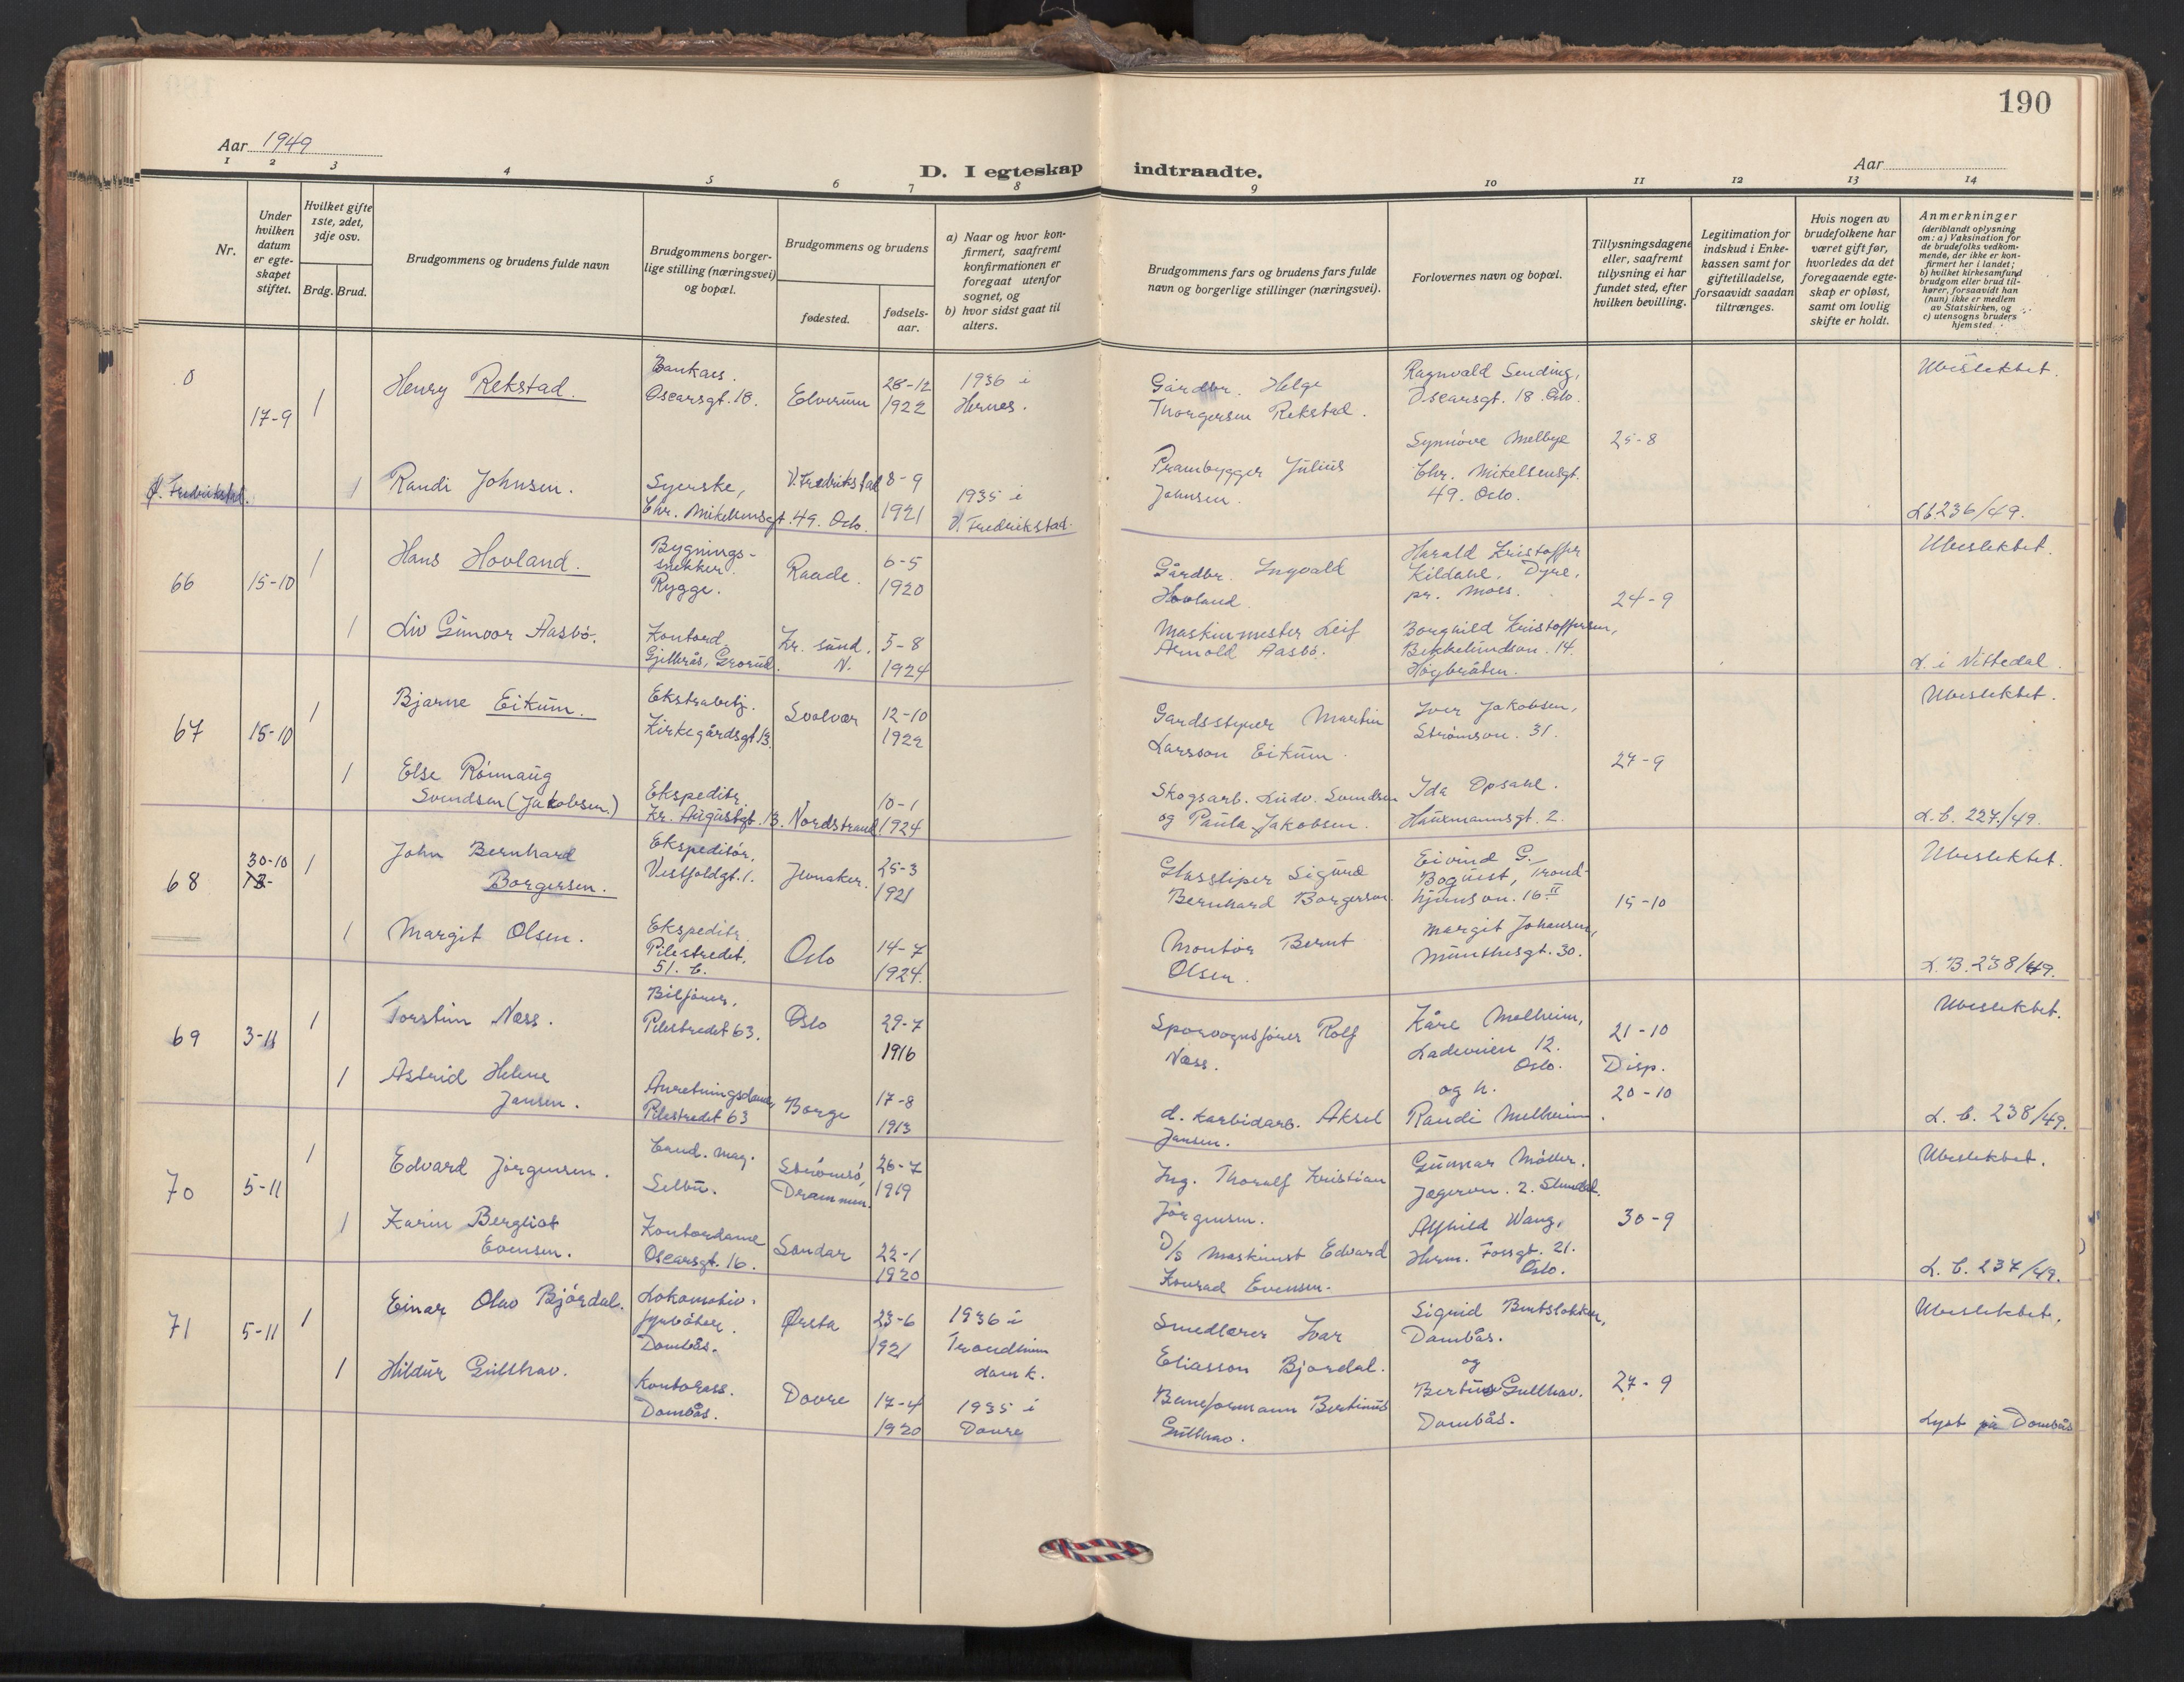 190
Aar 1949
D. I egteskap indtraadte.
Aar
1 2 3 4 5 6 7 8 9 10 11 12 13 14
Nr.
Under hvilken datum er egte-skapet stiftet.
Hvilket gifte 1ste, 2det, 3dje osv.
Brdg. Brud.
Brudgommens og brudens fulde navn
Brudgommens borger-lige stilling (næringsvei) og bopæl.
Brudgommens og brudens
fødested.
fødsels-aar.
a) Naar og hvor kon-firmert, saafremt konfirmationen er foregaat utenfor sognet, og
b) hvor sidst gaat til alters.
Brudgommens fars og brudens fars fulde navn og borgerlige stillinger (næringsvei).
Forlovernes navn og bopæl.
Tillysningsdagene eller, saafremt tillysning ei har fundet sted, efter hvilken bevilling.
Legitimation for indskud i Enke-kassen samt for giftetilladelse, forsaavidt saadan tiltrænges.
Hvis nogen av brudefolkene har været gift før, hvorledes da det foregaaende egte-skap er opløst, samt om lovlig skifte er holdt.
Anmerkninger (deriblandt oplysning om: a) Vaksination for de brudefolks vedkom-mende, der ikke er kon-firmert her i landet; b) hvilket kirkesamfund brudgom eller brud til-hører, forsaavidt han (hun) ikke er medlem av Statskirken, og c) utensogns bruders hjemsted.
0
17-9
1
Henry Rekstad.
Bankass.
Oscarsgt. 18.
Elverum
28-12
1922
1936 i
Hernes.
Gårdbr. Helge
Thorgersen Rekstad.
Ragnvald Sending,
Oscarsgt. 18. Oslo.
Synnöve Melbye
Chr. Mikelsensgt.
49. Oslo.
25-8
Ubeslektet.
V. Fredrikstad.
1
Randi Johnsen.
Syerske,
Chr. Mikelsensgt. 49. Oslo.
V. Fredrikstad
8-9
1921
1935 i
V. Fredrikstad.
Prambygger Julius
Johnsen.
L.b. 236/49.
66
15-10
1
Hans Hovland.
Bygnings-
snekker.
Rygge.
Raade.
6-5
1920
Gårdbr. Ingvald
Hovland.
Harald Kristoffer
Kildahl, Dyre,
pr. Moss.
24-9
Ubeslektet.
1
Liv Gunvor Aasbö.
Kontord.
Gjellerås, Grorud.
Kr. sund.
N.
5-8
1924
Maskinmester Leif
Arnold Aasbö.
Borghild Kristoffersen,
Bekkelundsvn. 14.
Høybråten.
L. i Nittedal.
67
15-10
1
Bjarne Eikum.
Ekstrabetj.
Kirkegårdsgt 13.
Svolvær
12-10
1922
Gardsstyrer Martin
Larsson Eikum.
Iver Jakobsen,
Strömsvn. 31.
27-9
Ubeslektet.
1
Else Rönnaug
Svendsen (Jakobsen)
Ekspeditr.
Kr. Augustgt. 13.
Nordstrand
10-1
1924
Skogsarb. Ludv. Svendsen
og Paula Jakobsen.
Ida Opsahl.
Hausmannsgt. 2.
L. b. 227/49.
68
30-10
1
John Bernhard
Borgersen.
Ekspeditör,
Vestfoldgt. 1.
Jevnaker.
25-3
1921
Glassliper Sigurd
Bernhard Borgersen.
Eivind G.
Boquist, Trond-
hjemsvn. 16 II
15-10
Ubeslektet.
1
Margit Olsen.
Ekspeditr.
Pilestredet.
51. b.
Oslo
14-7
1924.
Montör Bernt
Olsen.
Margit Johansen,
Munthesgt. 30.
L. B. 238/49.
69
3-11
1
Torstein Næss.
Bilförer,
Pilestredet 63.
Oslo
29-7
1916
Sporvognsförer Rolf
Næss.
Kåre Melheim,
Ladeveien 12.
Oslo.
og h.
Randi Melheim.
21-10
Disp.
20-10
Ubeslektet.
1
Astrid Helene
Jansen.
Anretningsdame,
Pilestredet 63
Borge
17-8
1913
d. Karbidarb. Aksel
Jansen.
L. b. 238/49.
70
5-11
1
Edvard Jörgensen.
Cand. mag.
Selbu.
Strömsö,
Drammen.
26-7
1919
Ing. Thoralf Kristian
Jörgensen.
Gunnar Möller.
Jægervn. 2. Slemdal.
Alfhild Wang,
Herm. Fossgt. 21.
Oslo.
30-9
Ubeslektet.
1
Karin Bergliot
Evensen.
Kontordame
Oscarsgt. 16.
Sandar
22-1
1920
D/s Maskinist Edvard
Konrad Evensen.
L. b. 237/49.
71
5-11
1
Einar Olav Björdal.
Lokomotiv-
fyrböter.
Dombås.
Ørsta
23-6
1921
1936 i
Trondheim
domk.
Smedlærer Ivar
Eliasson Bjordal.
Sigurd
Dombås.
og
Bertinus Gullhav.
Dombås.
27-9
Ubeslektet.
1
Hildur Gullhav.
Kontorass.
Dombås.
Dovre
17-4
1920
1935 i
Dovre
Baneformann Bertinius
Gullhav.
Lyst på Dombås